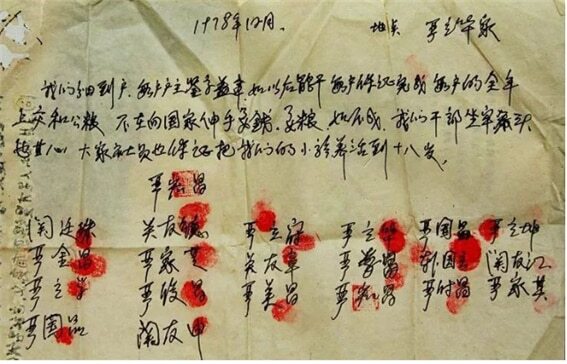 1978年12月。 地点 严立华家
我们分田到户,每户户主签字盖章,如以后能干,每户保证完成每户的全年
上交和公粮,不在向国家伸手要钱、要粮,如不成,我们干部坐牢杀头
也甘心,大家社员也保证把我们的小孩养活到十八岁。
严宏昌
关廷珠 关友德 严立符 严立华 严国昌 严立坤
严金昌 严家芝 关友章 严学昌 韩国云 关友江
严立学 严俊昌 严美昌 严宏昌 严付昌 严家其
严国品 关友申